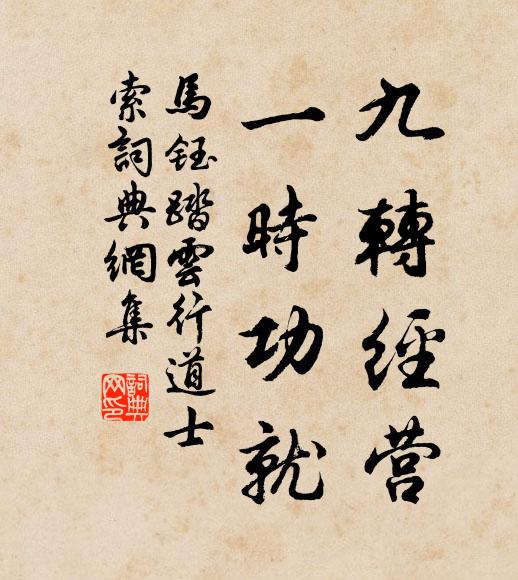 九轉經營
一時功就
馬鈺踏雲行道士
索詞典網集
詞典
网印